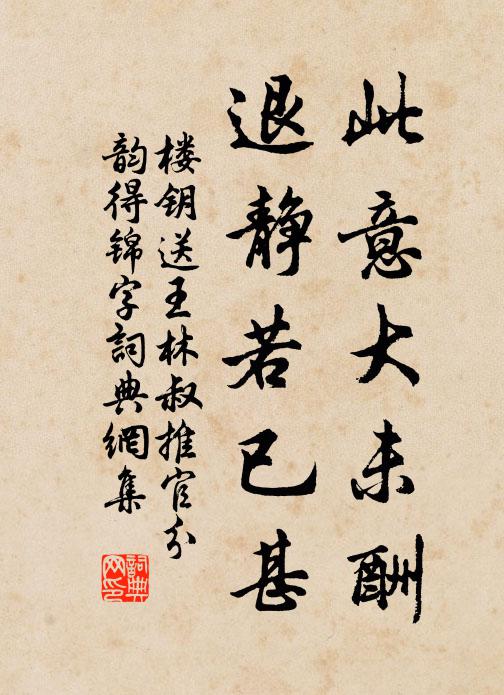 此意大未酬
退静若已甚
楼钥送王林叔推官分
韵得锦字詞典網集
詞典
网印